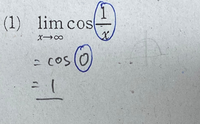 (1) lim x→∞ cos 1/x
= cos 0
= 1